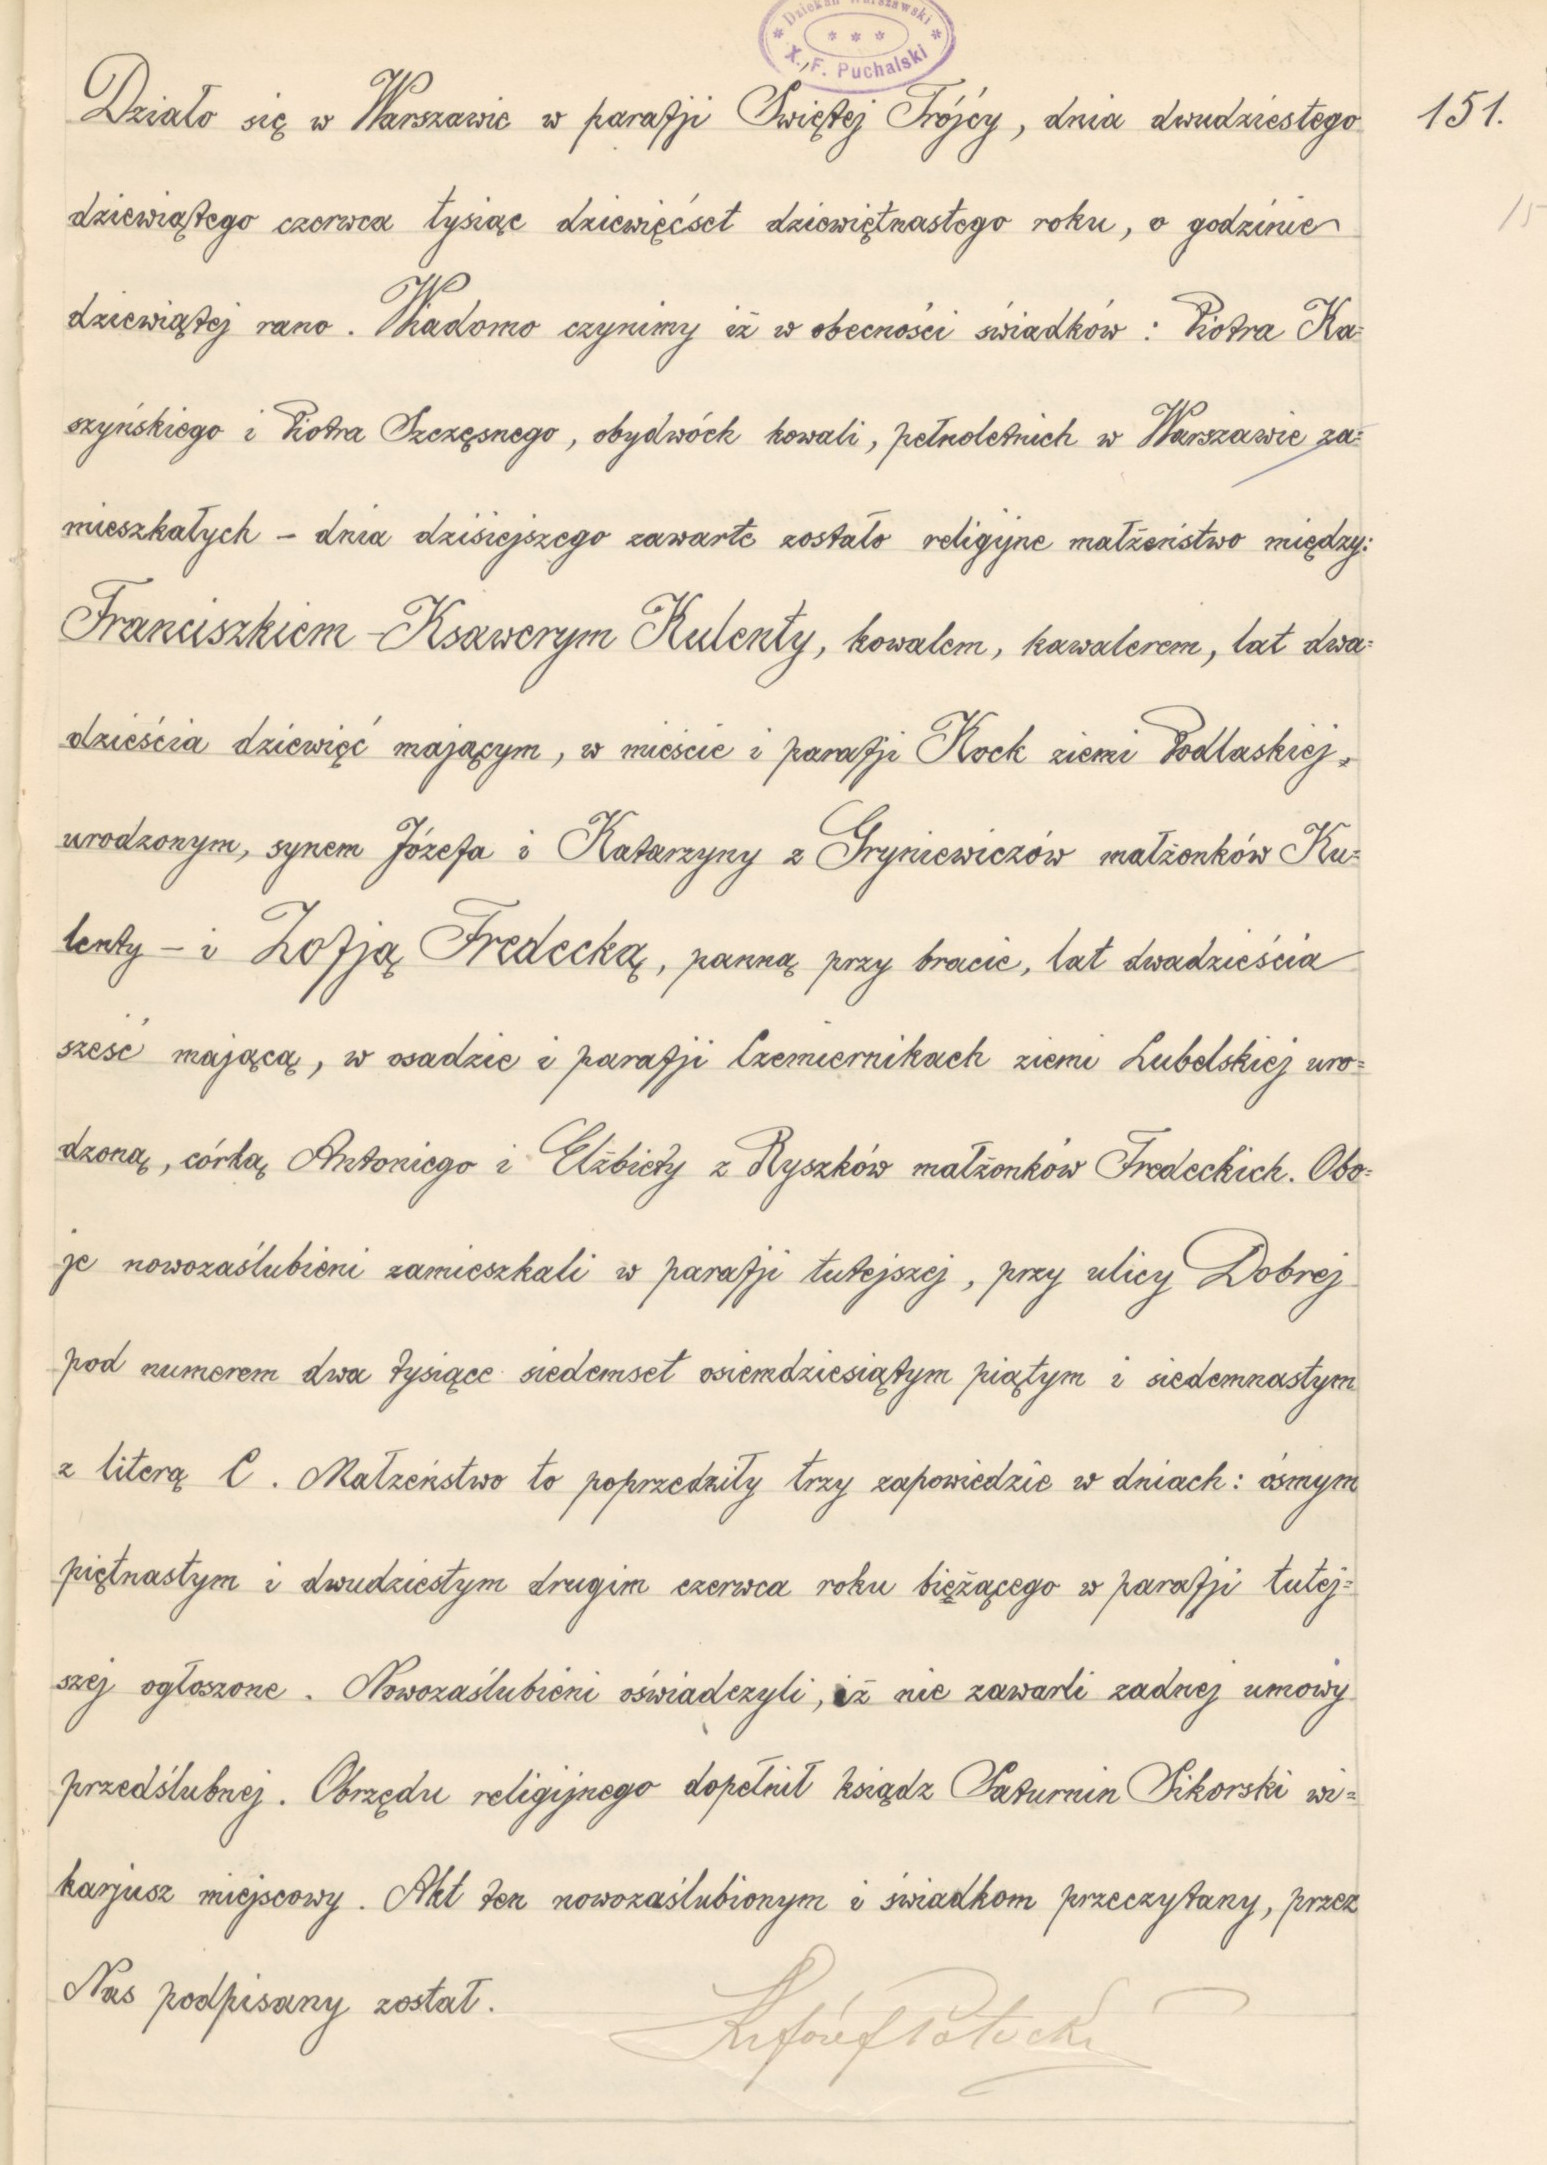 Dziekan Warszawski
X. F. Puchalski
Działo się w Warszawie w parafji Świętej Trójcy, dnia dwudziestego
151.
dziewiątego czerwca tysiąc dziewięćset dziewiętnastego roku, o godzinie
15
dziewiątej rano. Wiadomo czynimy iż w obecności świadków: Piotra Ka=
szyńskiego i Piotra Szczęsnego, obydwóch kowali, pełnoletnich w Warszawie za=
mieszkałych – dnia dzisiejszego zawarte zostało religijne małżeństwo między:
Franciszkiem-Ksawerym Kulenty, kowalem, kawalerem, lat dwa=
dzieścia dziewięć mającym, w mieście i parafji Kock ziemi Podlaskiej,
urodzonym, synem Józefa i Katarzyny z Gryniewiczów małżonków Ku=
lenty – i Zofją Fredecką, panną przy bracie, lat dwadzieścia
sześć mającą, w osadzie i parafji Czemiernikach ziemi Lubelskiej uro=
dzoną, córką Antoniego i Elżbiety z Ryszków małżonków Fredeckich. Obo=
je nowozaślubieni zamieszkali w parafji tutejszej, przy ulicy Dobrej
pod numerem dwa tysiące siedemset osiemdziesiątym piątym i siedemnastym
z literą C. Małżeństwo to poprzedziły trzy zapowiedzie w dniach: ósmym
piętnastym i dwudziestym drugim czerwca roku bieżącego w parafji tutej=
szej ogłoszone. Nowozaślubieni oświadczyli, iż nie zawarli żadnej umowy
przedślubnej. Obrzędu religijnego dopełnił ksiądz Saturnin Sikorski wi=
karjusz miejscowy. Akt ten nowozaślubionym i świadkom przeczytany, przez
Nas podpisany został.
Józef Potocki